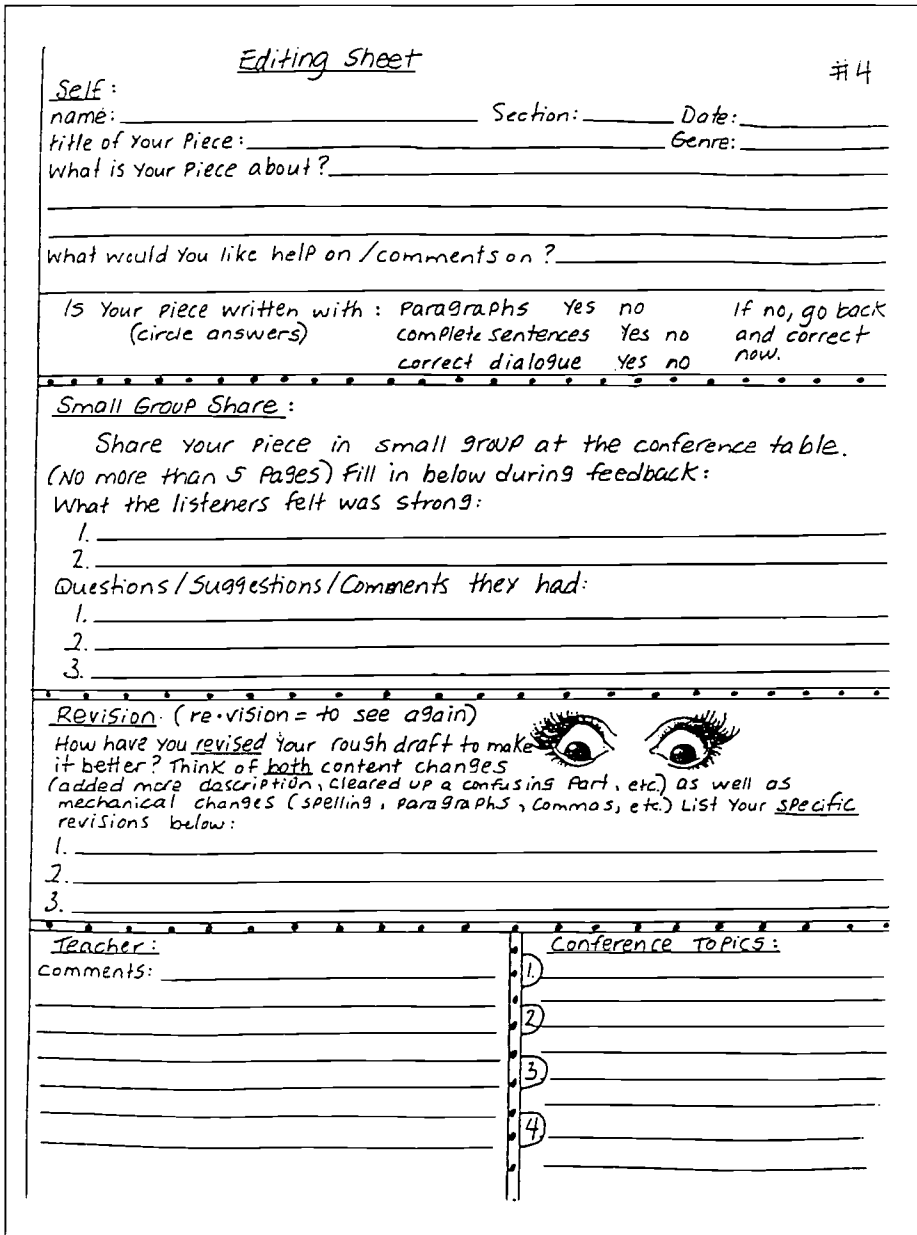 Editing Sheet
#4
Self:
name: Section: Date:
title of Your Piece: Genre:
What is Your Piece about?
What would You like help on/comments on?
Is Your piece written with: Paragraphs Yes no If no, go back
(circle answers) complete sentences Yes no and correct
correct dialogue Yes no now.
Small Group Share:
Share Your Piece in small group at the conference table.
(No more than 5 Pages) Fill in below during feedback:
What the listeners felt was strong:
1.
2.
Questions/Suggestions/Comments they had:
1.
2.
3.
Revision. (re•vision = to see again)
How have you revised Your rough draft to make
it better? Think of both content changes
(added more description, cleared up a confusing Part, etc.) as well as
mechanical changes (spelling, paragraphs, commas, etc.) List Your specific
revisions below:
1.
2.
3.
Teacher:
Comments:
Conference Topics:
1.
2
3
4.